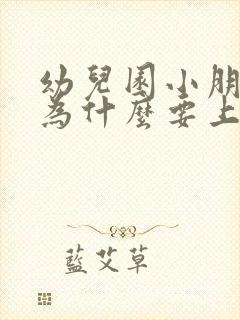 幼兒園小朋
為什麼要上
藍艾草